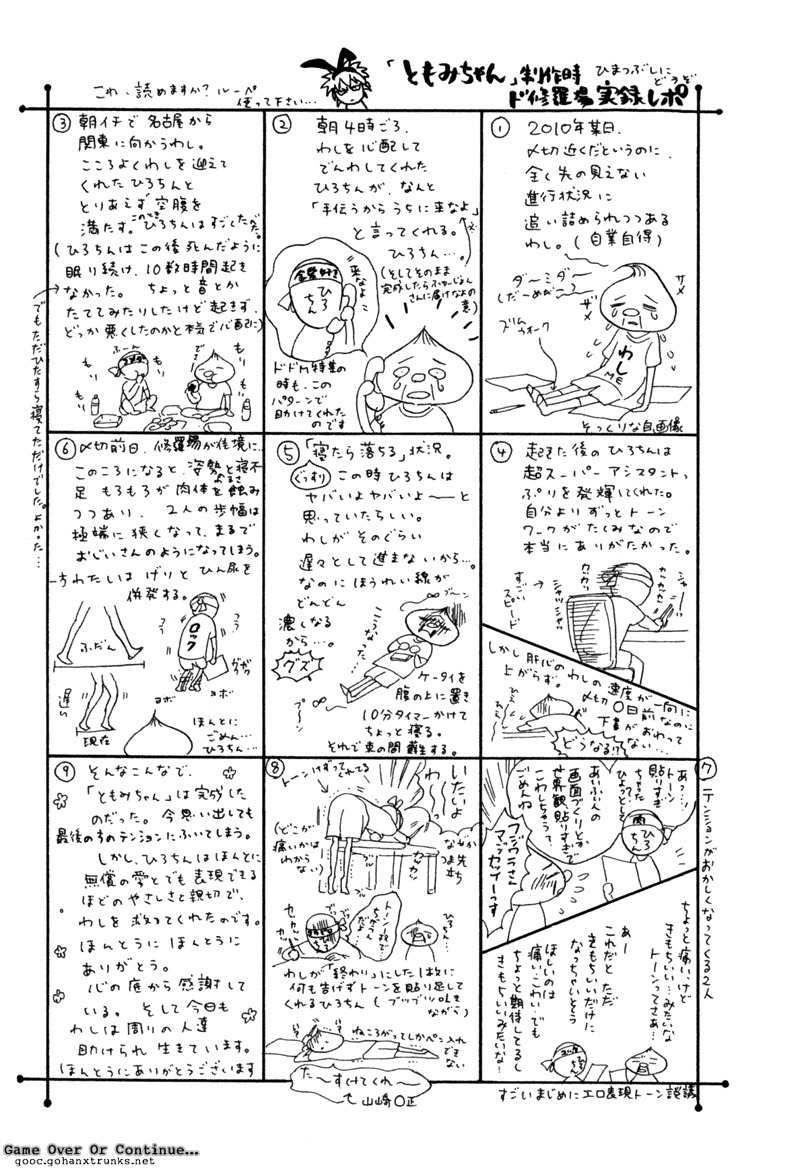 「ともみちゃん」制作時
ド修羅場実録レポ
ひまつぶしに
どうぞ
これ、読めますか?ルーペ
使って下さい…
① 2010年某日、
〆切近くだというのに、
全く先の見えない
進行状況に
追い詰められつつある
わし。(自業自得)
ダ〜ミ、ダ〜
しだ〜めだ〜っ
ザメ
ザメ
ズムウォーク
わし
ME
そっくりな自画像
② 朝4時ごろ、
わしを心配して
でんわしてくれた
ひろちんが、なんと
「手伝うからうちに来なよ」
と言ってくれる。
ひろちん…。
(そしてそのまま
完成したら
さんに届けなよの
意)
来なよ
ひろちん
ドドM特集の
時も、この
パターンで
助けてくれた
のです
③ 朝イチで名古屋から
関東に向かうわし。
こころよくわしを迎えて
くれたひろちんと
とりあえず空腹を
満たす。このときひろちんはすごしただ。
(ひろちんはこの後死んだように
眠り続け、10数時間起き
なかった。ちょっと音とか
たててみたりしたけど起きず、
どっか悪くしたのかと本当で心配に)
でもただひたすら寝てただけでした。よかった…
ふーん
もり
もり
で
④ 起きた後のひろちんは
超スーパーアシスタントっ
ぷりを発揮してくれた。
自分よりずっとトーン
ワークがたくみなので
本当にありがたかった。
すごい
スピード
シャッ
シャッ
カッカッ
カカカカッ
シャー
しかし肝心のわしの速度が一向に
上がらず。
〆切〇日前なのに
下書がおわって
ない…
どうなる!?
⑤ 「寝たら落ちる」状況。
ぐっすり
この時ひろちんは
ヤバいよヤバいよ〜〜と
思っていたらしい。
わしがそのぐらい
遅々として進まないから…。
なのにほうれい線が
どんどん
濃くなる
から…。
グズ
こうなっ
プ〜ン
ケータイを
腹の上に置き
10分タイマーかけて
ちょっと寝る。
それで束の間蘇生する。
⑥ 〆切前日、修羅場が佳境に…
このころになると、姿勢わるさと寝不
足もろもろが肉体を蝕み
つつあり、2人の歩幅は
極端に狭くなって、まるで
おじいさんのようになってしまう。
ちわたしはげりとひん尿を
併発する。
ふだん
遅い
現在
フラ
フラ
ロック
ヨボ
ヨボ
ほんとに
ごめん…
ひろちん…
⑦ テンションがおかしくなってくる2人
あっ…
トーン
貼りすぎ
ちゃった
ひょっとして
肉
ひろちん
あいぶんの
画面づくりとか
世界観、貼りすぎで
こわしちゃうって
ごめんね
マンセッブーっす
ちょっと痛いけど
きもちいい…みたいな
トーンってさぁ…
あー
これだとただ
きもちいいだけに
なっちゃいそう
ほしいのは
痛い、こわい、でも
ちょっと期待してるし
きもちいいみたいな!
すごいまじめにエロ表現トーン談議
⑧ トーンけずってくれてる
いたいよ
わ
(どこが
痛いかは
わから
ない)
なぜか
つま先
立ち
ひろちん…
カッ
カッ
ブツブツ
わしが「終わり」にした1枚に
何も告げずトーンを貼り足して
くれるひろちん(ブツブツ呟き
ながら)
ねころがってしかペン入れ
できない
た〜すけてくれ〜
山崎〇正
⑨ そんなこんなで、
「ともみちゃん」は完成した
のだった。今思い出しても
最後の方のテンションにふいてしまう。
しかし、ひろちんはほんとに
無償の愛とでも表現できる
ほどのやさしさと親切で、
わしを救ってくれたのです。
ほんとうにほんとうに
ありがとう。
心の底から感謝して
いる。そして今日も
わしは周りの人達
助けられ生きています。
ほんとうにありがとうございます
Game Over Or Continue...
gooc.gohanxtrunks.net